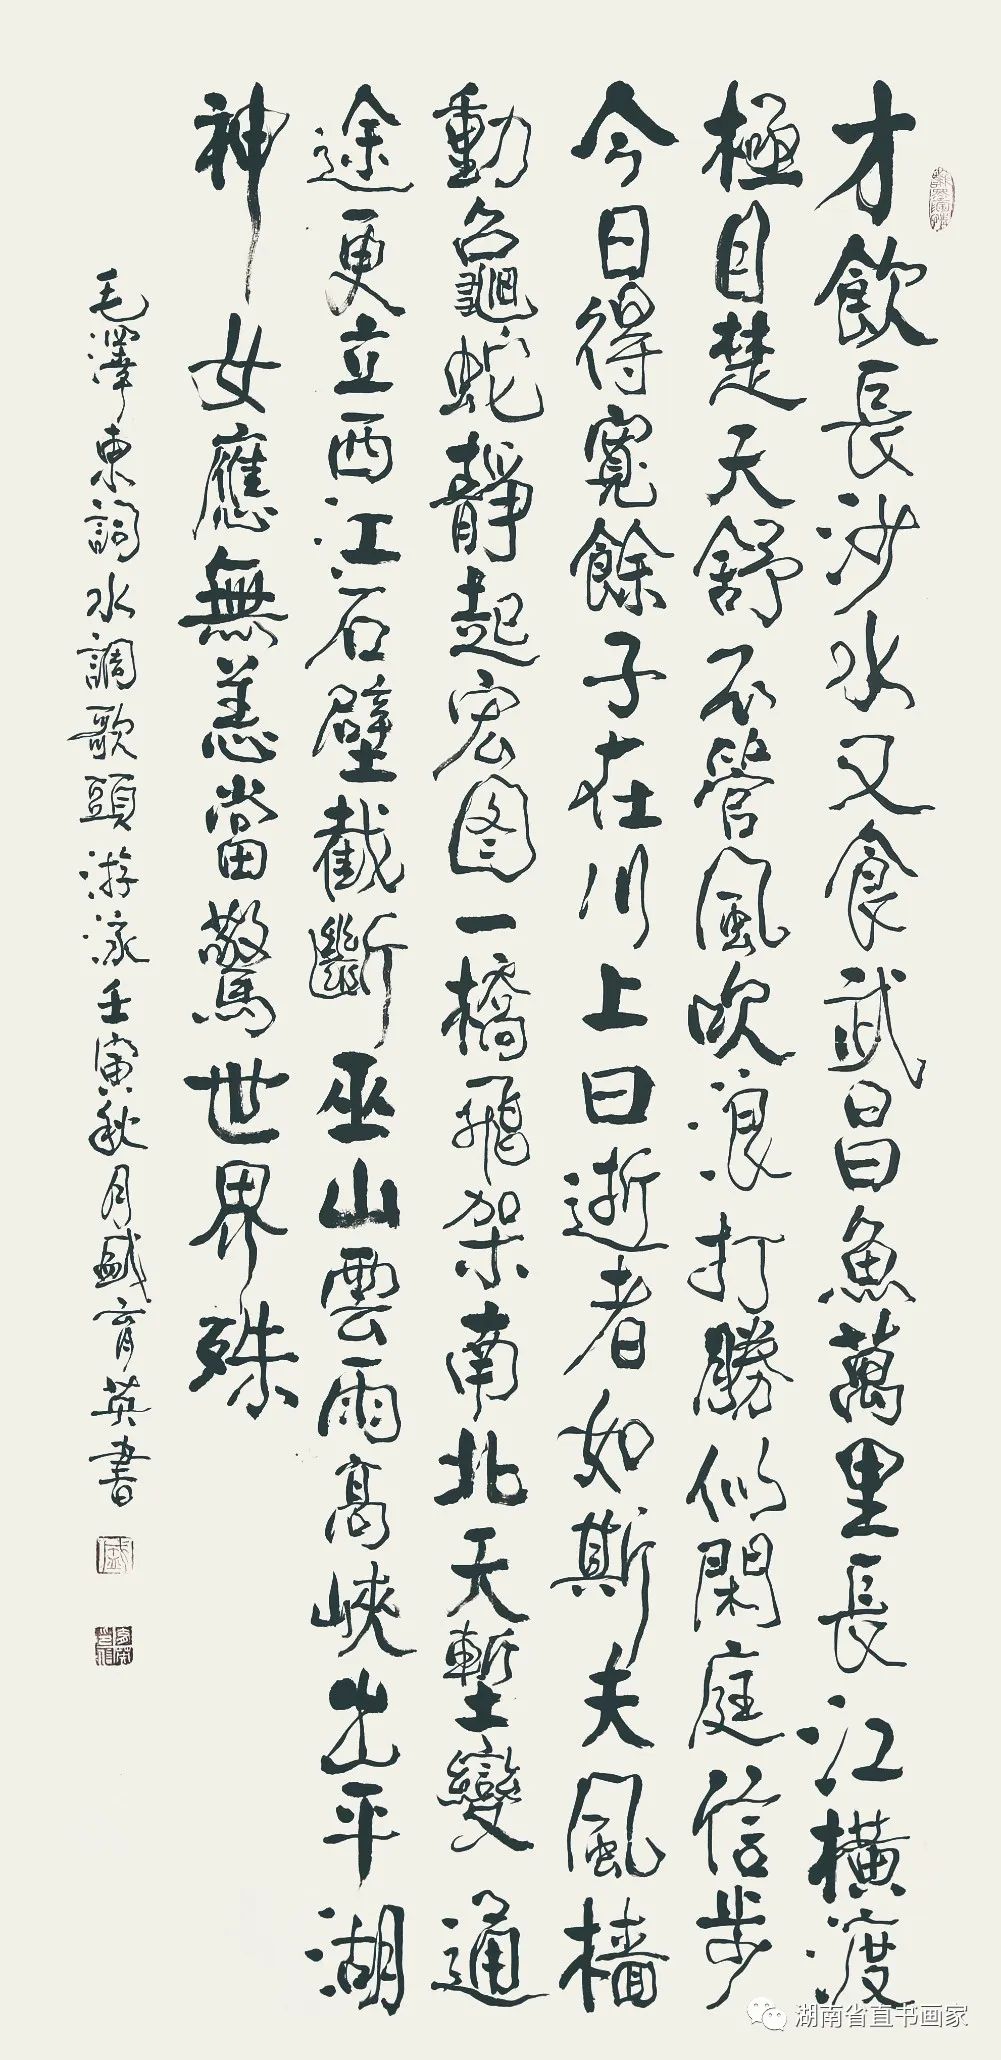 才飲長沙水又食武昌魚萬里長江橫渡
極目楚天舒不管風吹浪打勝似閑庭信步
今日得寬餘子在川上曰逝者如斯夫風檣
動龜蛇靜起宏图一橋飛架南北天塹變通
途更立西江石壁截斷巫山雲雨高峽出平湖
神女應無恙當驚世界殊
毛澤東詞水調歌頭游泳壬寅秋月盛育英書
湖南省直书画家